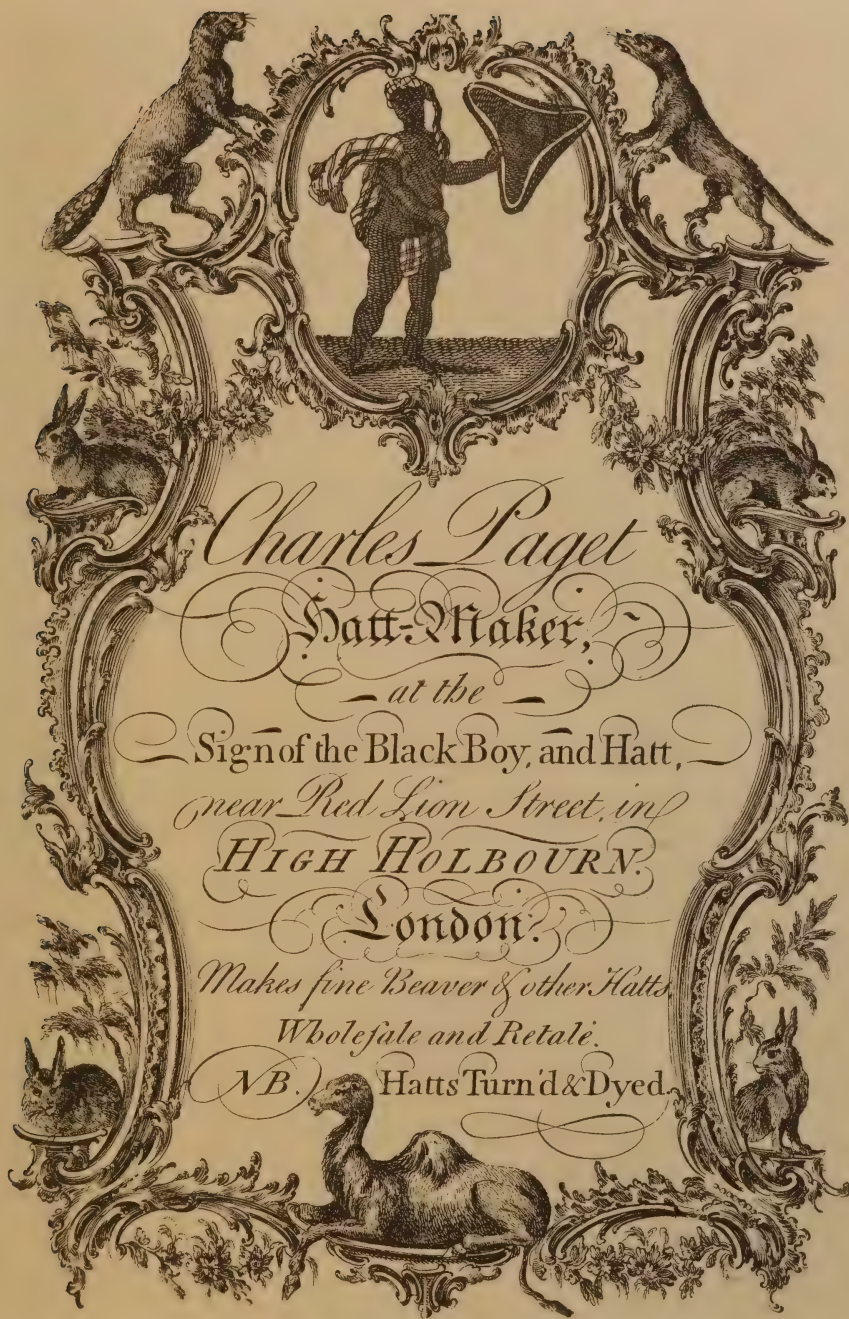 Charles Paget
Hatt-Maker,
at the
Sign of the Black Boy, and Hatt,
near Red Lion Street, in
HIGH HOLBOURN.
London.
Makes fine Beaver & other Hatts.
Wholesale and Retale.
NB. Hatts Turn'd & Dyed.